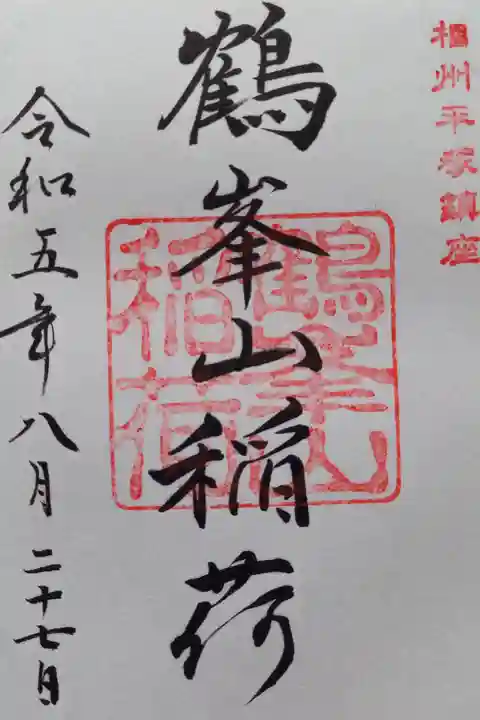 相州平塚鎮座
鶴峯山稲荷
鶴峯山稲荷
令和五年八月二十七日